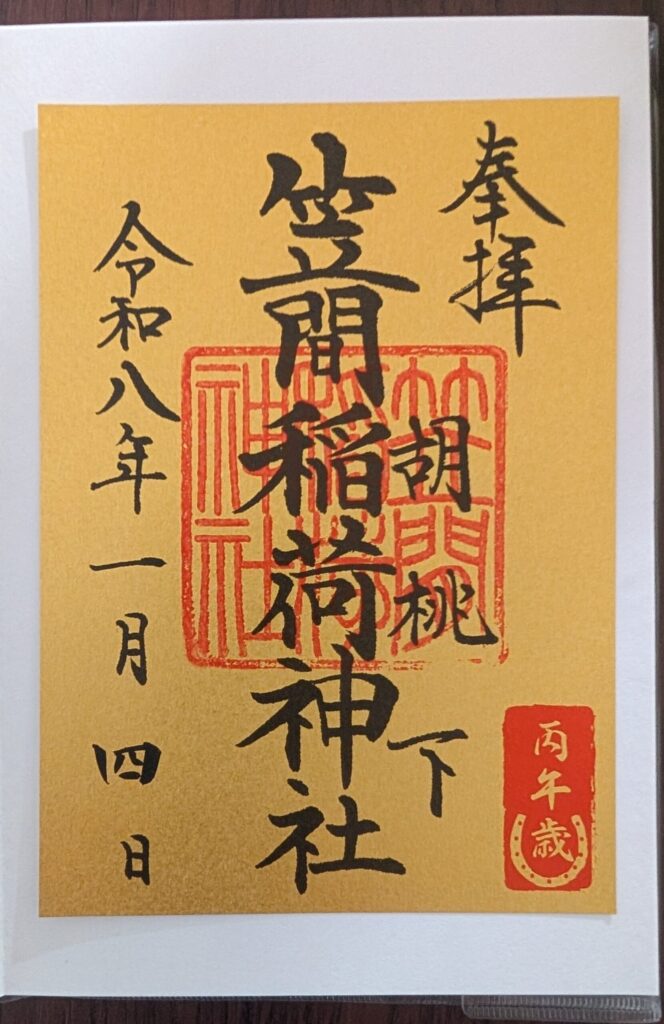 奉拝
胡桃下
笠間稲荷神社
令和八年一月四日
笠間稲荷神社
丙午歳